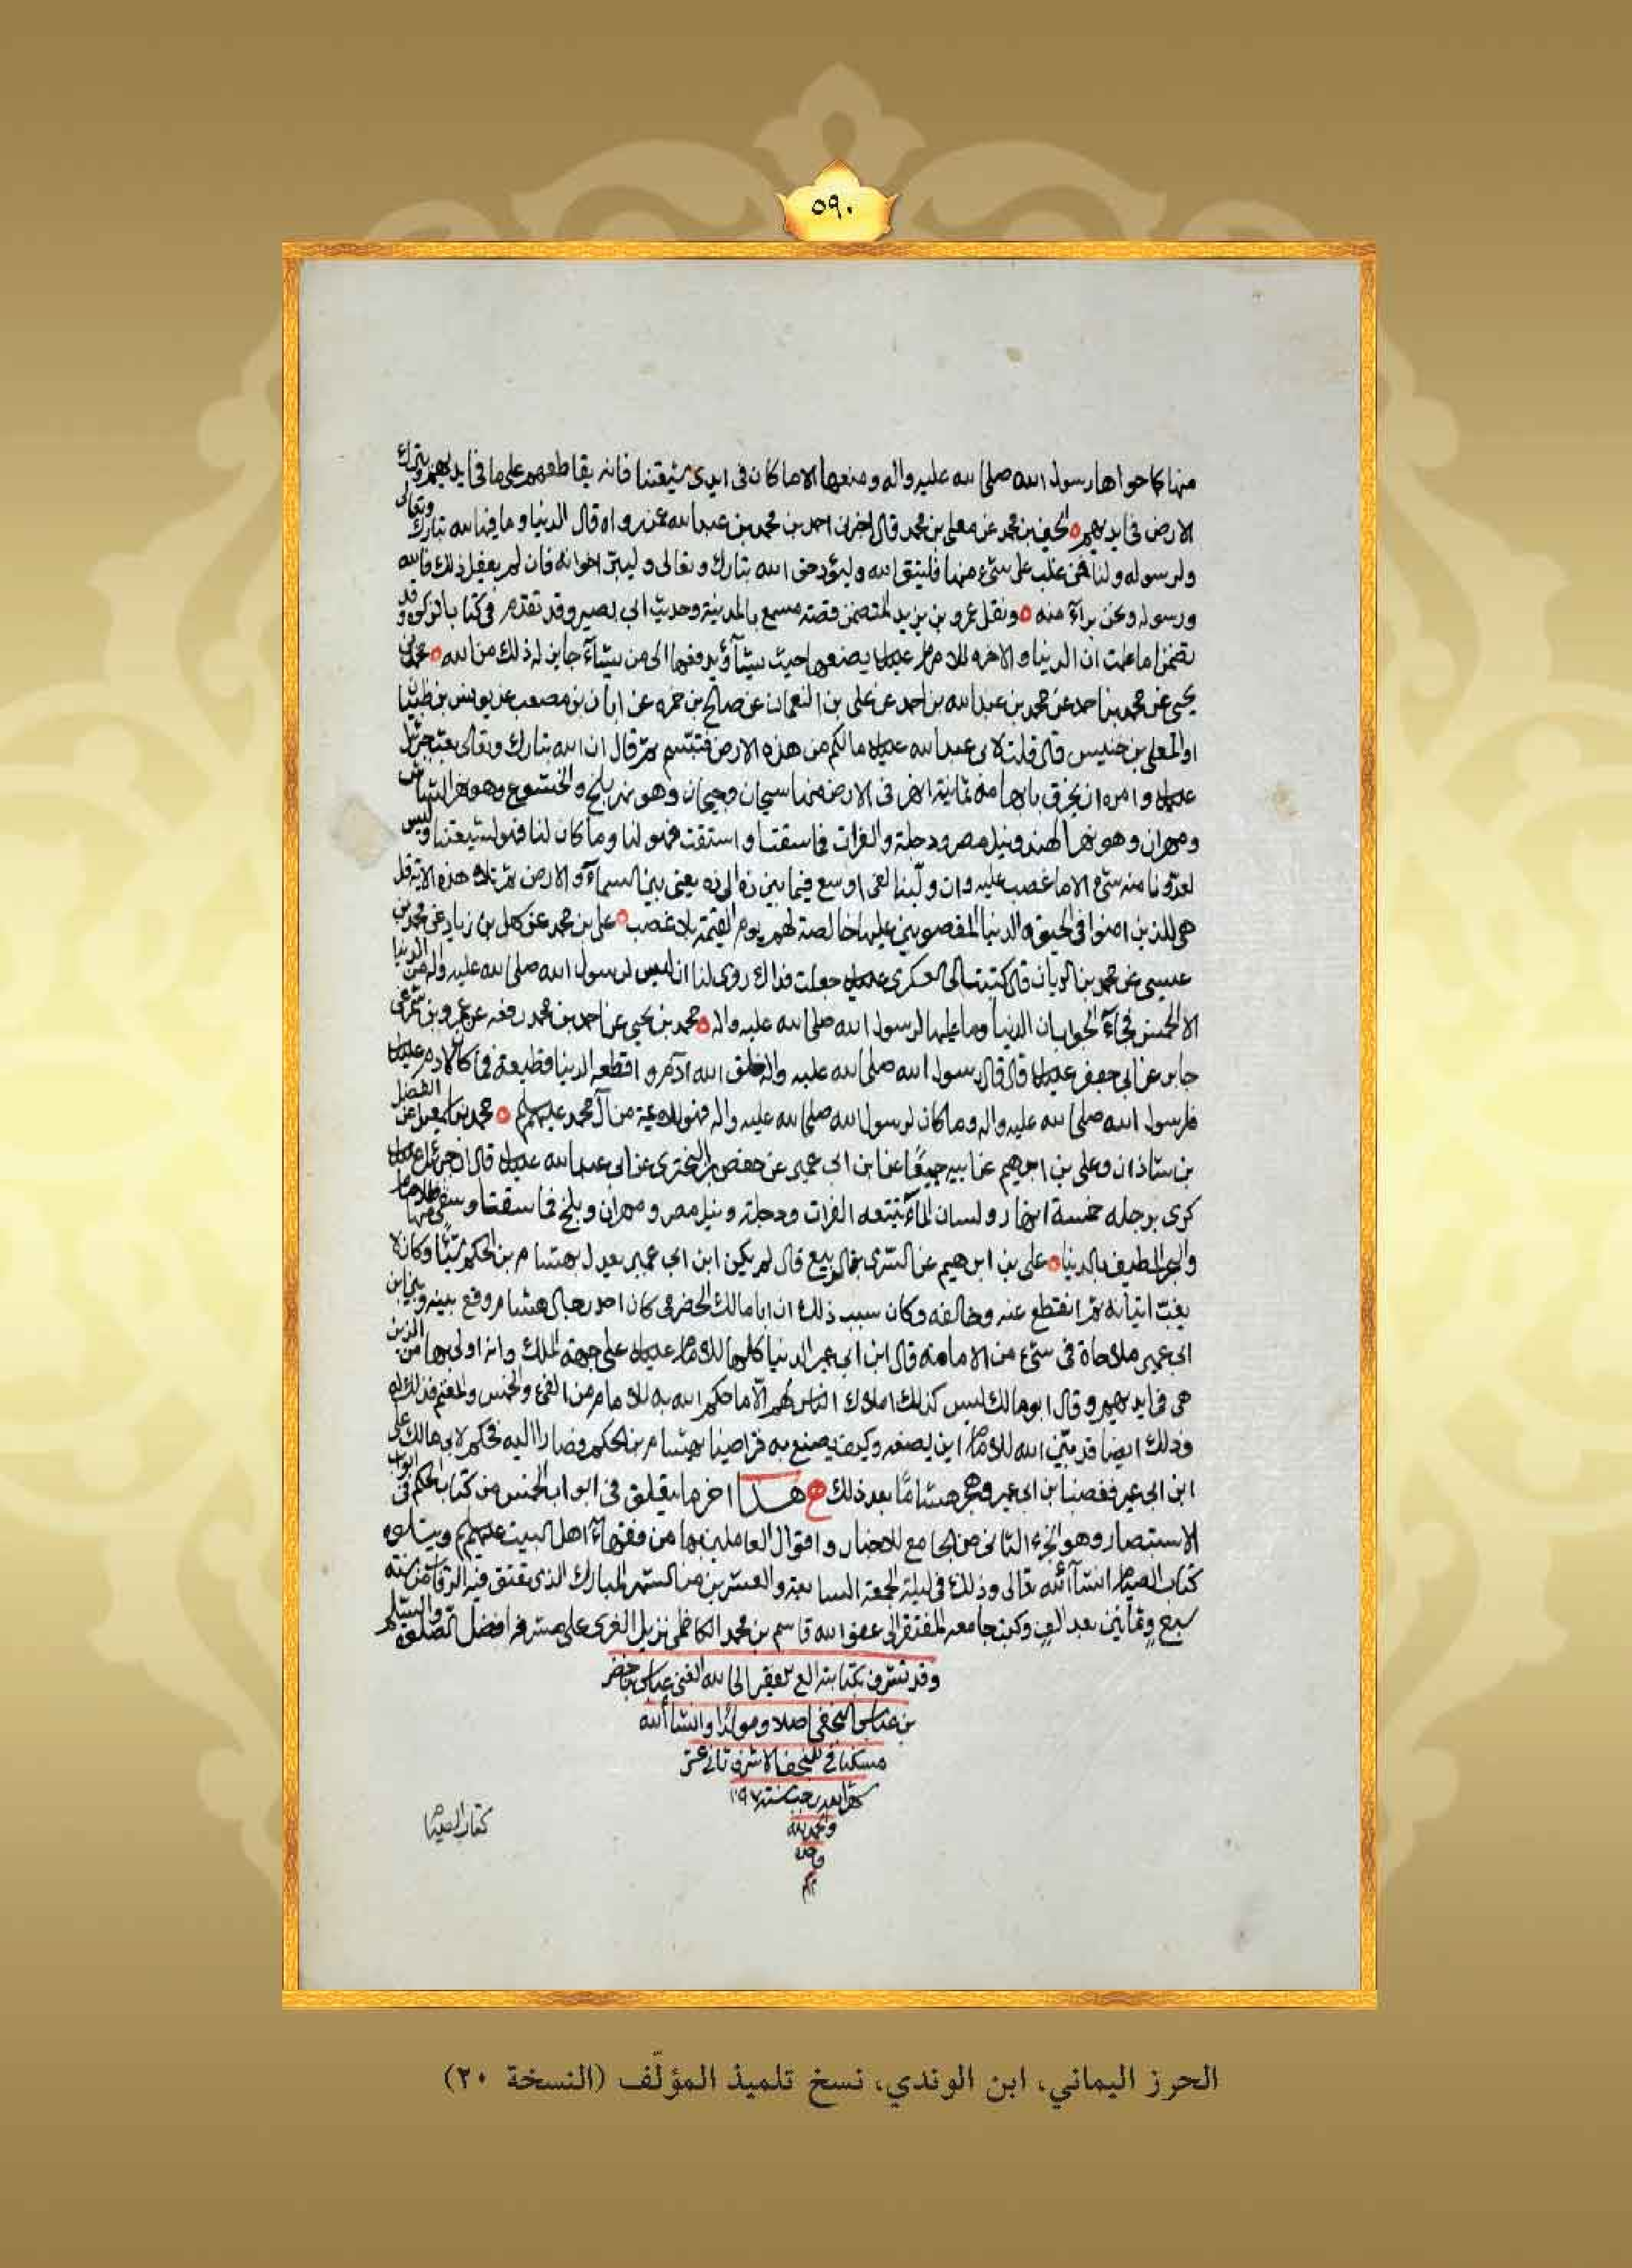 ٥٩٠
منها كما حواها رسول الله صلى الله عليه واله ومنعها الا ما كان في ايدي شيعتنا فانه يقاطعهم على ما في ايديهم ويترك
الارض في ايديهم الحسين بن محمد عن معلى بن محمد قال اخبرني احمد بن محمد بن عبد الله عمن رواه قال الدنيا وما فيها لله تبارك وتعالى
ولرسوله ولنا فمن غلب على شيء منها فليتق الله وليؤد حق الله تبارك وتعالى وليبر اخوانه فان لم يفعل ذلك فالله
ورسوله ونحن برآء منه ونقل عمرو بن يزيد المتضمن قصة مسمع بالمدينة وحديث ابي بصير وقد تقدم في كتاب الزكوة وقد
تضمن اما علمت ان الدنيا والاخرة للامام عليه السلام يضعها حيث يشآء ويدفعها الى من يشآء جايز له ذلك من الله محمد بن
يحيى عن محمد بن احمد عن محمد بن عبد الله بن احمد عن علي بن النعمان عن صالح بن حمزه عن ابان بن مصعب عن يونس بن ظبيان
او المعلى بن خنيس قال قلت لابي عبد الله عليه السلام ما لكم من هذه الارض فتبسم ثم قال ان الله تبارك وتعالى بعث جبرئيل
عليه السلام وامره ان يخرق بابهامه ثمانية انهر في الارض منها سيحان وجيحان وهو نهر بلخ والخشوع وهو نهر الشاش
ومهران وهو نهر الهند ونيل مصر ودجلة والفرات فما سقت او استقت فهو لنا وما كان لنا فهو لشيعتنا وليس
لعدونا منه شيء الا ما غصب عليه وان ولينا لفي اوسع فيما بين ذه الى ذه يعني بين السمآء والارض ثم تلا هذه الاية قل
هي للذين امنوا في الحيوة الدنيا المغصوبين عليها خالصة لهم يوم القيمة بلا غصب علي بن محمد عن سهل بن زياد عن محمد بن
عيسى عن محمد بن الريان قال كتبت الى العسكري عليه السلام جعلت فداك روى لنا ان ليس لرسول الله صلى الله عليه واله من الدنيا
الا الخمس فجآء الجواب ان الدنيا وما عليها لرسول الله صلى الله عليه واله محمد بن يحيى عن احمد بن محمد رفعه عن عمرو بن شمر عن
جابر عن ابي جعفر عليه السلام قال قال رسول الله صلى الله عليه واله خلق الله آدم واقطعه الدنيا قطيعة فما كان لادم عليه السلام
فلرسول الله صلى الله عليه واله وما كان لرسول الله صلى الله عليه واله فهو للائمة من آل محمد عليهم السلام محمد بن اسمعيل عن الفضل
بن شاذان وعلي بن ابرهيم عن ابيه جميعا عن ابن ابي عمير عن حفص بن البختري عن ابي عبد الله عليه السلام قال ان جبرئيل عليه السلام
كرى برجله خمسة انهار ولسان المآء يتبعه الفرات ودجلة ونيل مصر ومهران وبلخ فما سقت او سقى منها فللامام
والبحر المطيف بالدنيا علي بن ابرهيم عن السري بن الربيع قال لم يكن ابن ابي عمير يعدل بهشام بن الحكم شيئا وكان لا
يغب اتيانه ثم انقطع عنه وخالفه وكان سبب ذلك ان ابا مالك الحضرمي كان احد رجال هشام وقع بينه وبين ابن
ابي عمير ملاحاة في شيء من الامامة قال ابن ابي عمير الدنيا كلها للامام عليه السلام على جهة الملك وانه اولى بها من الذين
هي في ايديهم وقال ابو مالك ليس كذلك املاك الناس لهم الا ما حكم الله به للامام من الفئ والخمس والمغنم فذلك له
وذلك ايضا قد بين الله للامام اين يضعه وكيف يصنع به فتراضيا بهشام بن الحكم وصارا اليه فحكم لابي مالك على
ابن ابي عمير فغضب ابن ابي عمير وهجر هشاما بعد ذلك هذا اخر ما يتعلق في ابواب الخمس من كتاب الحكم في ابواب
الاستبصار وهو الجزء الثاني من الجامع للاخبار واقوال العاملين بها من فقهآء اهل البيت عليهم السلام ويتلوه
كتاب الصيام انشآء الله تعالى وذلك في ليلة الجمعة السابعة والعشرين من الشهر المبارك الذي تعتق فيه الرقاب من سنة
سبع وثمانين بعد الالف وكتب جامعه المفتقر الى عفو الله قاسم بن محمد الكاظمي نزيل الغري على مشرفه افضل الصلوة والسلم
وقد تشرف بكتابته الفقير الى الله الغني عباس بن خضر
بن عباس النجفي اصلا ومولدا وانشا الله
مسكنا في النجف الاشرف ثاني عشر
رجب سنة ١٠٩٧
والحمد لله
وحده
كتاب الصيام
الحرز اليماني، ابن الوندي، نسخ تلميذ المؤلّف (النسخة ٢٠)